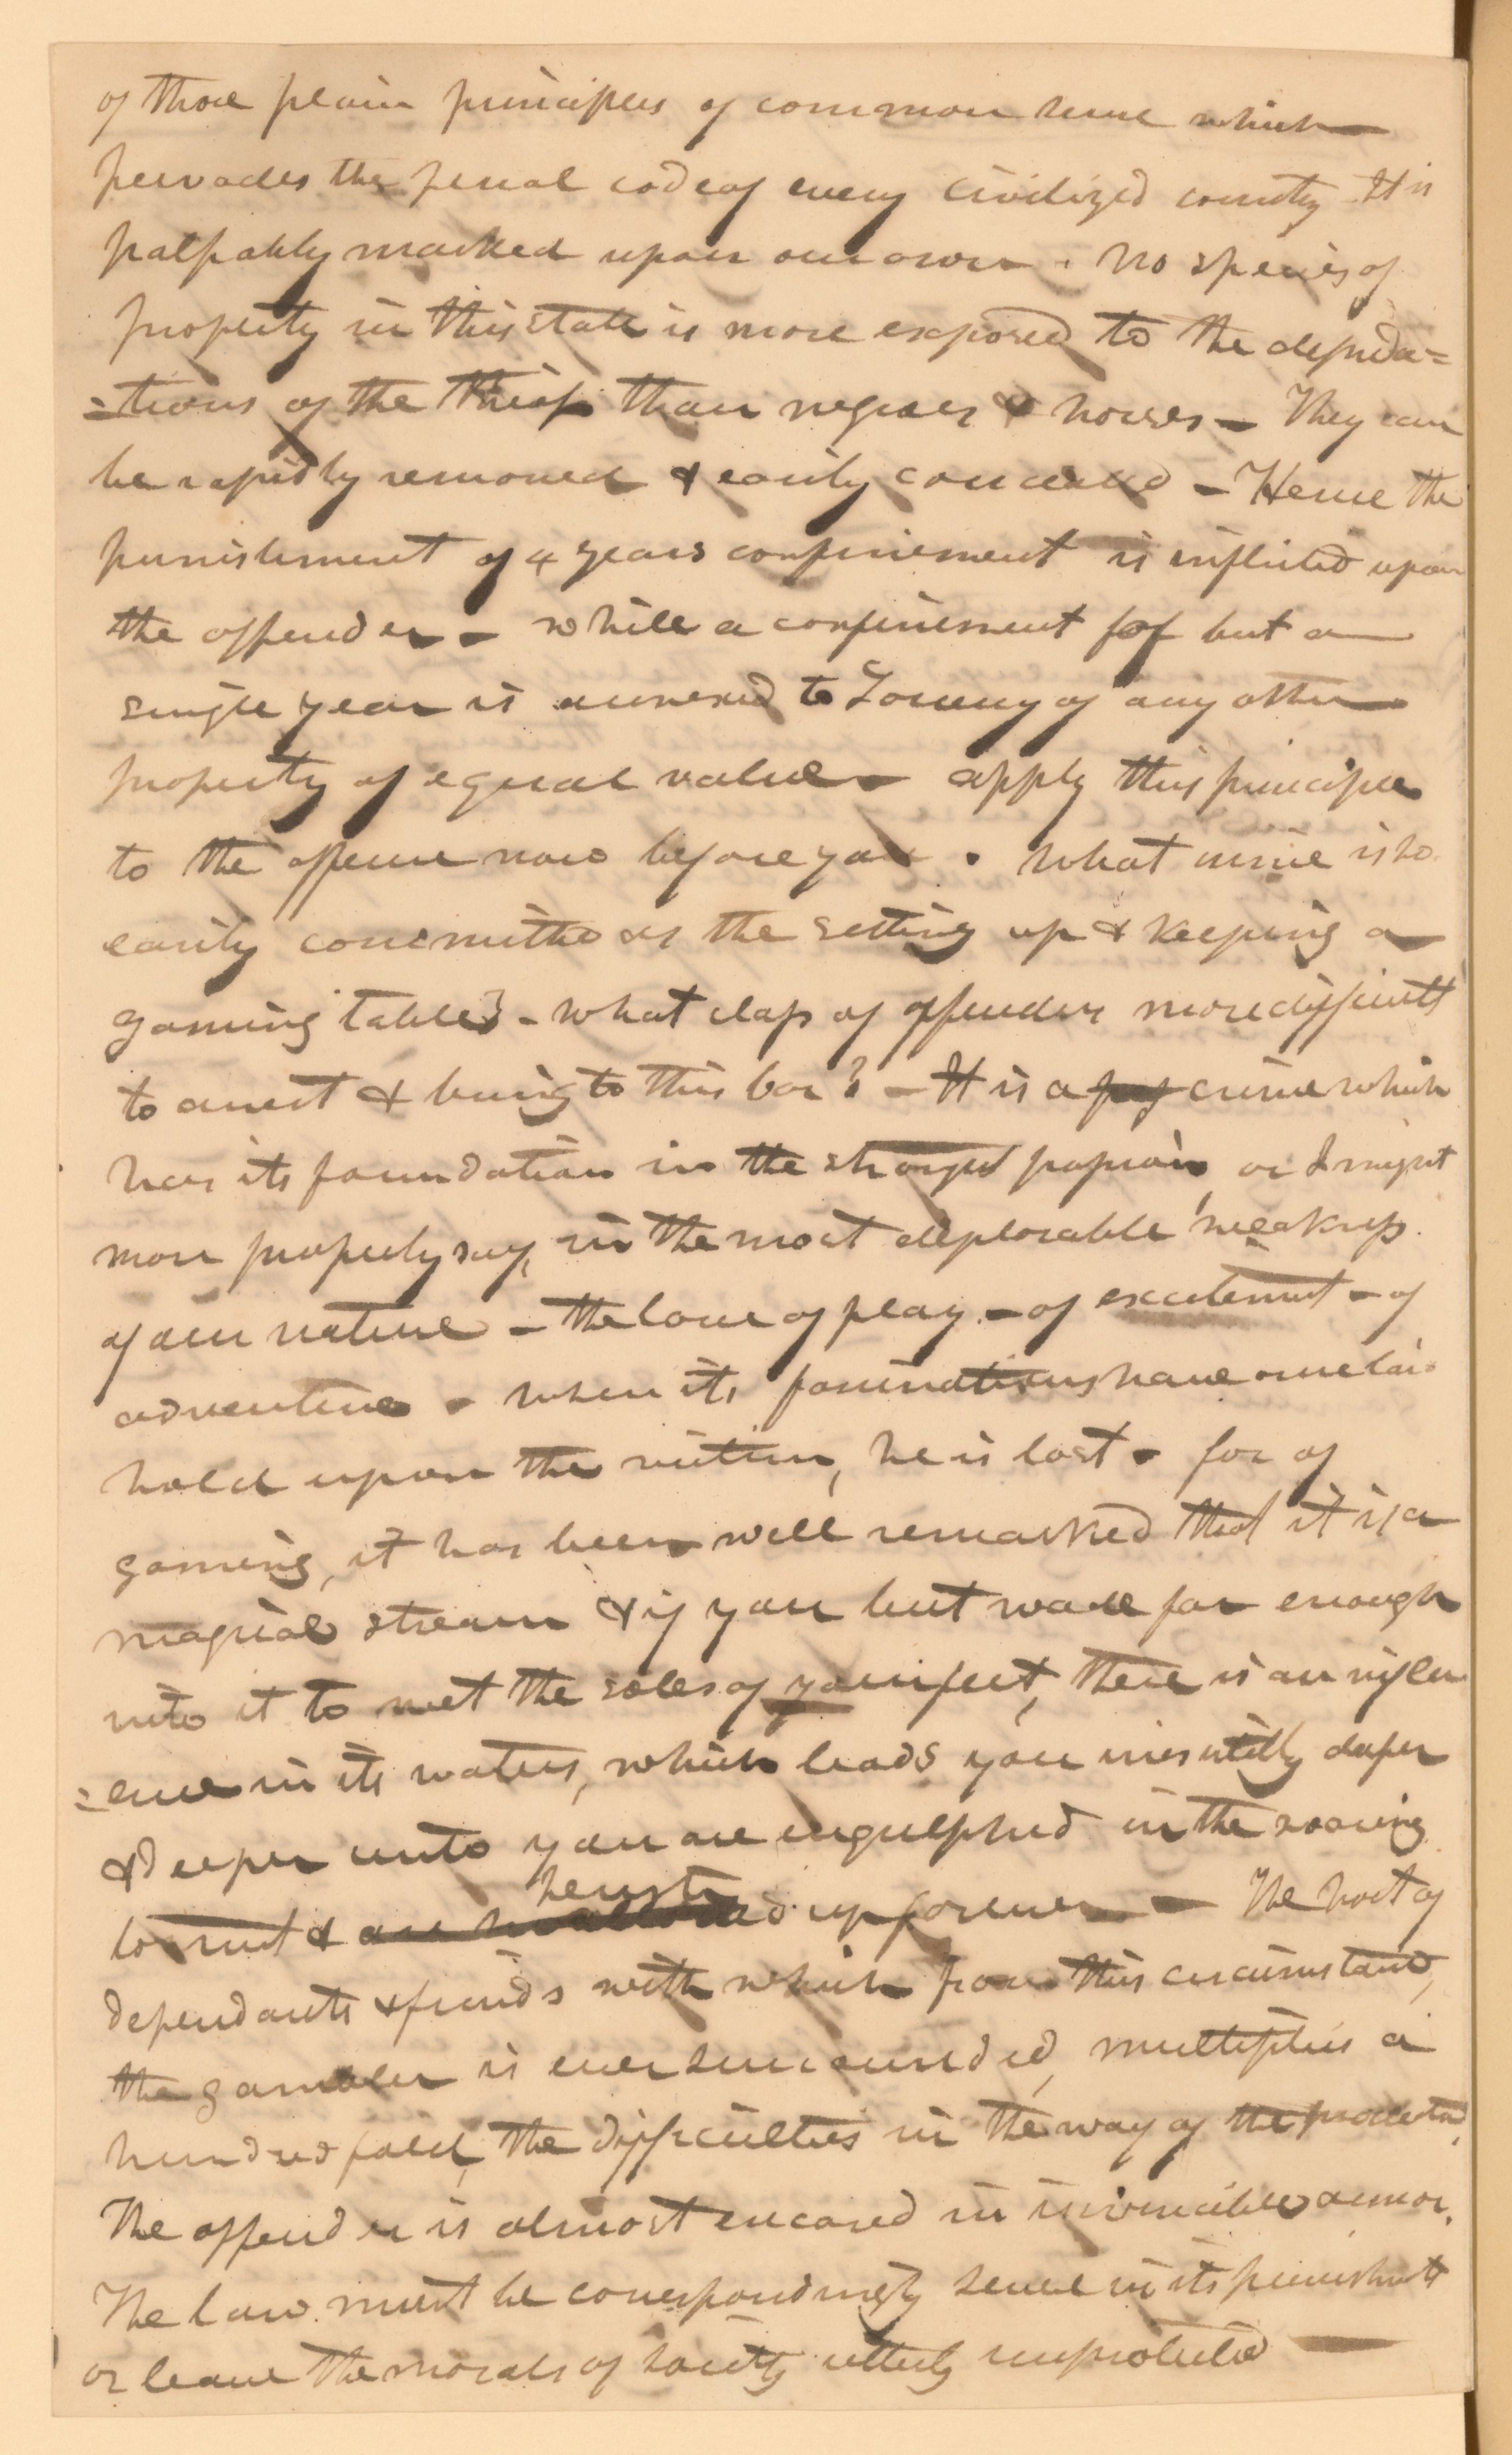 of those plain principles of common sense which
pervades the penal code of every civilized country It is
palpably marked upon our own. No species of
property in this state is more exposed to the depreda=
=tions of the thief than negroes & horses – They can
be rapidly removed & easily concealed – Hence the
punishment of 4 years confinement is inflicted upon
the offender – while a confinement of but a
single year is annexed to Larceny of any other
property of equal value – apply this principle
to the offence now before you. What crime is so
easily committed as the setting up & keeping a
gaming table? – what class of offenders more difficult
to arrest & bring to this bar? – It is a crime which
has its foundation in the strongest passion, or I might
more properly say, in the most deplorable weakness
of our nature – the love of play – of excitement – of
adventure – when its fascinations have once laid
hold upon the victim, he is lost – for of
gaming, it has been well remarked that it is a
magical stream & if you but wade far enough
into it to wet the soles of your feet, there is an influ
=ence in its waters, which leads you irresistibly deeper
& deeper unto you are engulphed in the roaring
torrent & are up forever – The host of
dependants & friends with which from this circumstance,
the gambler is ever surrounded, multiplies a
hundred fold, the difficulties in the way of the
The offender is almost encased in invincible armor.
The law must be correspondingly severe in its punishments
or leave the morals of society utterly unprotected —